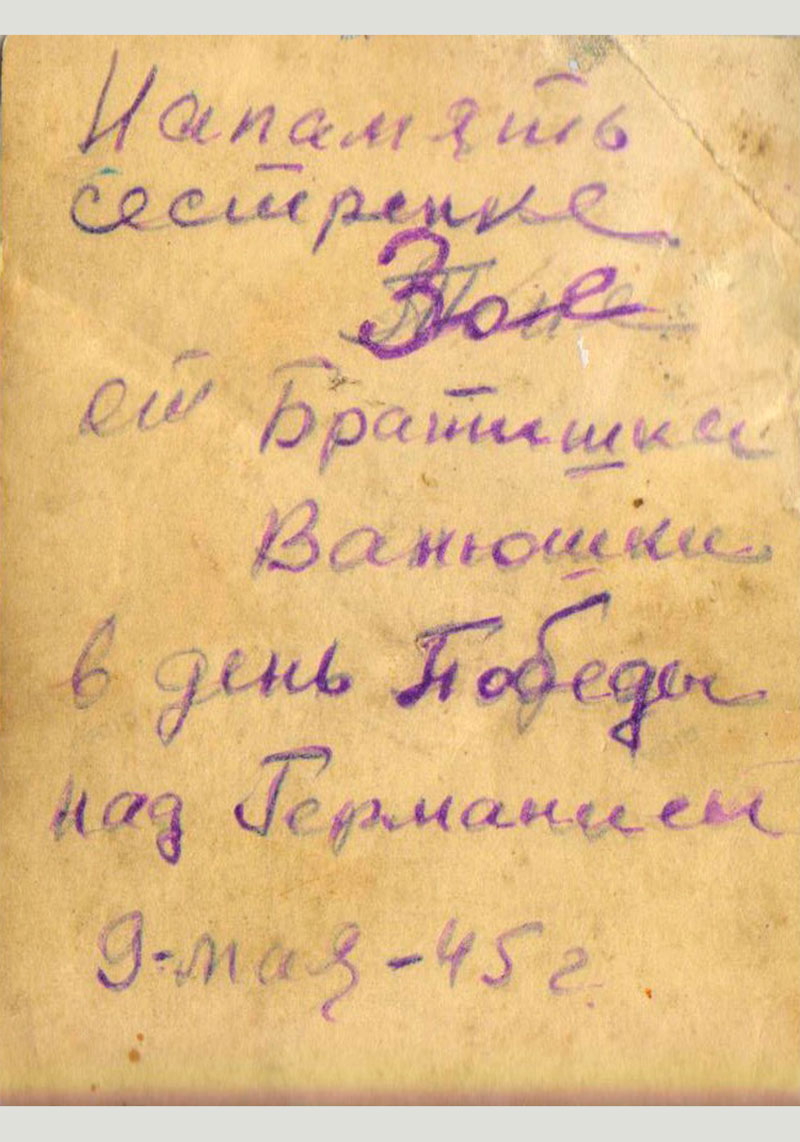 Напамять
сестренке
Зое
от Братишки
Ванюшки
в день Победы
над Германией
9-мая-45 г.